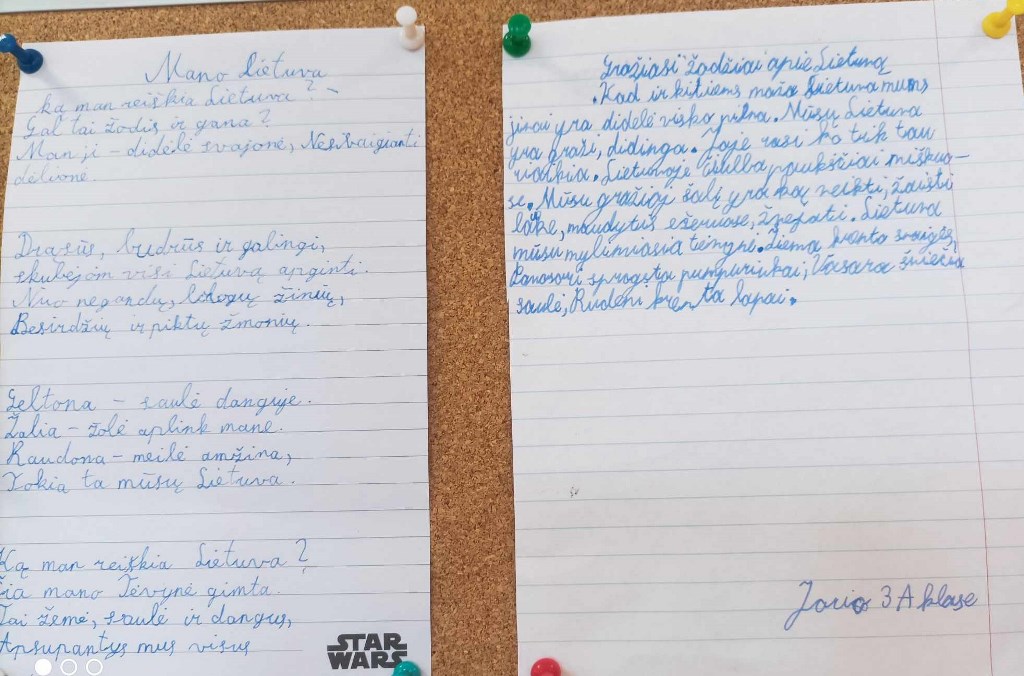 Mano Lietuva
ką man reiškia Lietuva? –
Gal tai žodis ir gana?
Man ji – didelė svajonė,
delionė.
Drąsūs, budrūs ir galingi,
skubėjom visi Lietuvą apginti.
Nuo negandų, blogų žinių,
Beširdžių ir piktų žmonių.
Geltona – saulė danguje.
Žalia – žolė aplink mane.
Raudona – meilė amžina,
Tokia ta mūsų Lietuva.
Ką man reiškia Lietuva?
Čia mano Tėvynė gimta.
Tai žemė, saulė ir dangus,
Apsupantys mus visus
STAR
WARS
Gražiasi žodžiai apie Lietuvą
Kad ir kitiems maža Lietuva mums
jinai yra didelė visko pilna. Mūsų Lietuva
yra graži, didinga. Joje rasi ko tik tau
reikia. Lietuvoje čiulba paukščiai miškuo-
se. Mūsu gražioji šalį yra ką veikti, žaisti
lauke, maudytis ežeruose, žvejoti. Lietuva
mūsu mylimiasia tėvynė. Žiema krenta snaigės,
Panasarį sprogsta pumpuriukai, Vasara šviečia
saulė, Rudenį krenta lapai.
3 A klasė